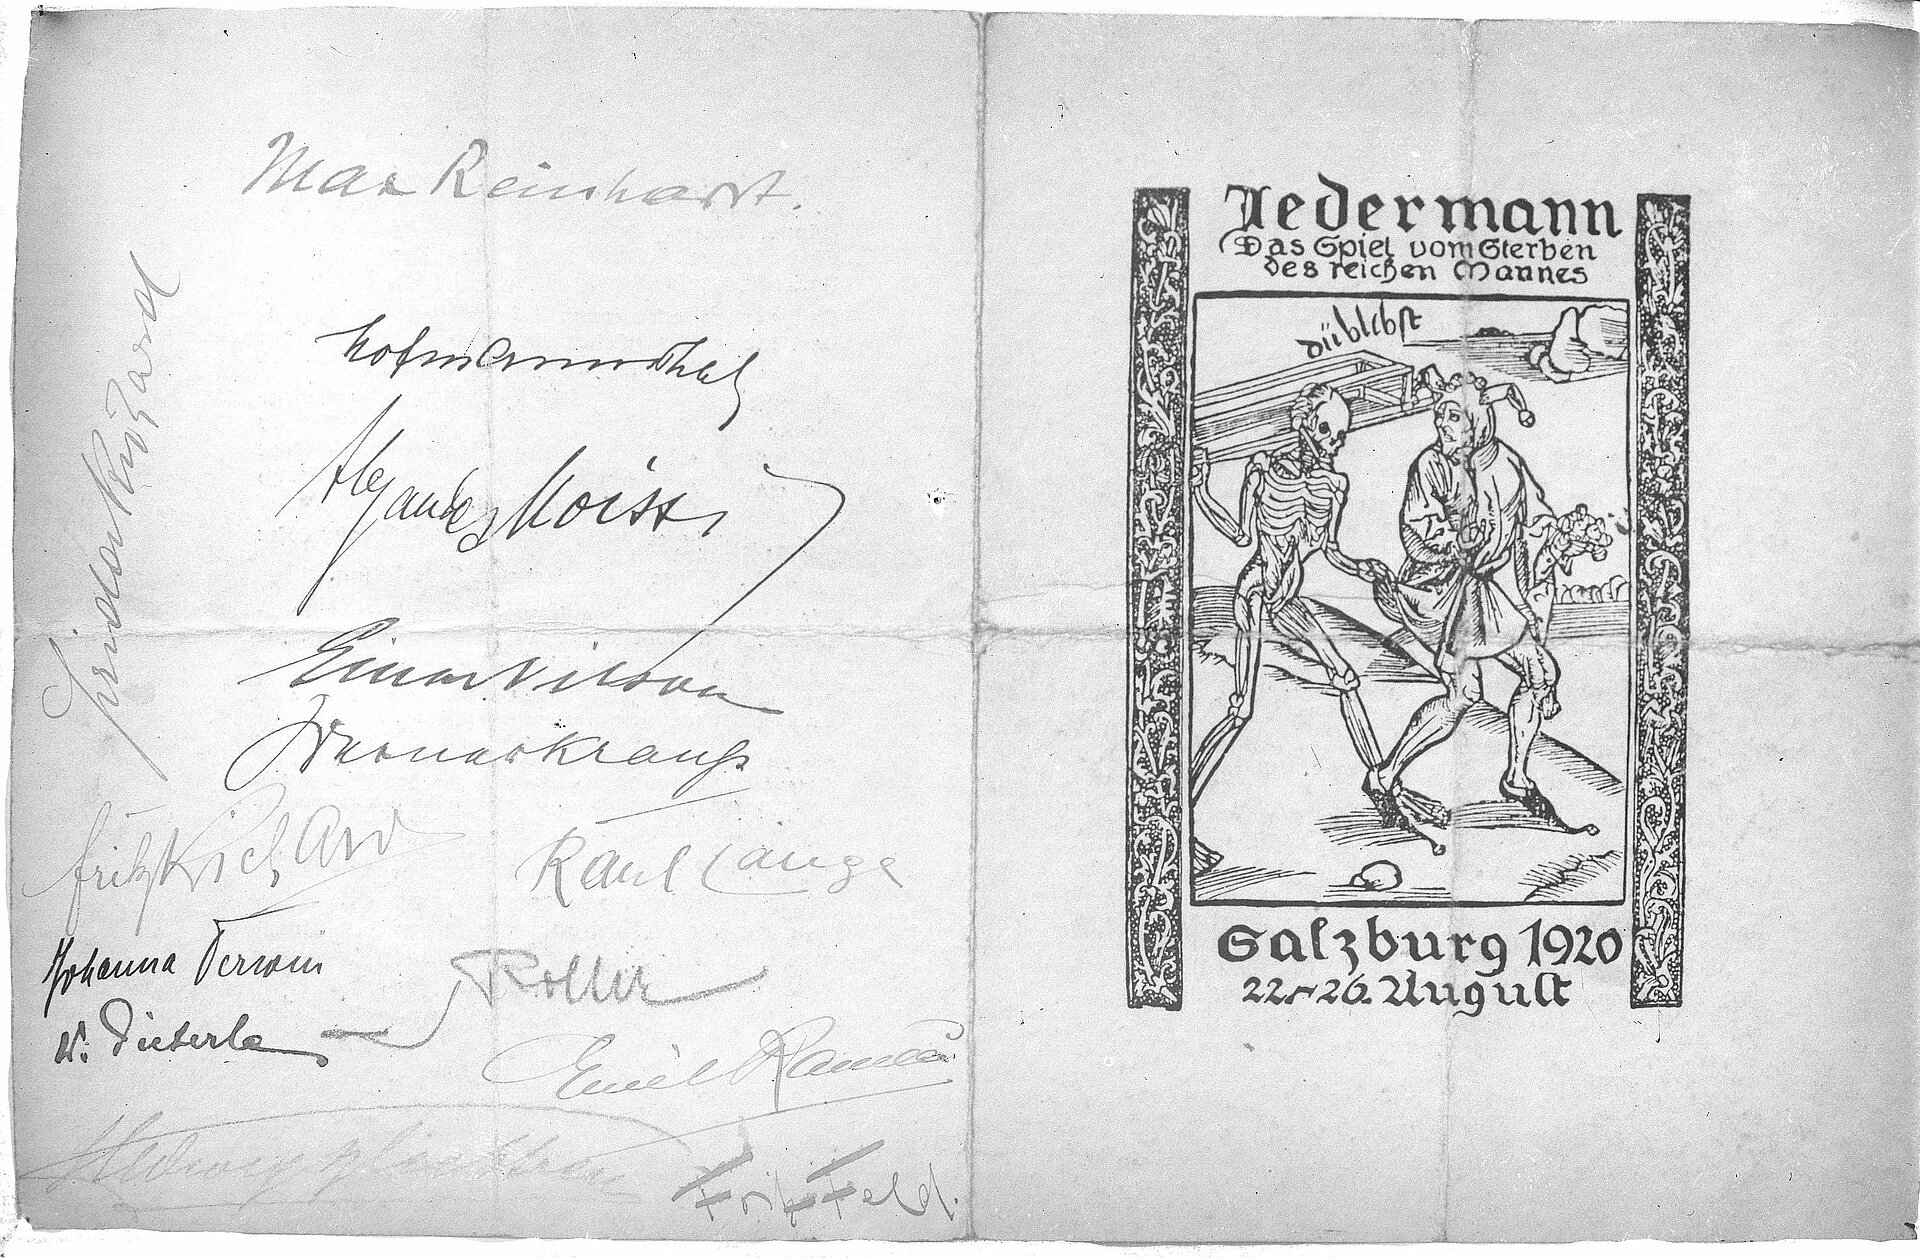 Max Reinhardt.
Hofmannsthal
Alexander Moissi
Einar Nilson
Werner Krauß
Frieda Richard
Fritz Richard
Raul Lange
Johanna Terwin
Roller
W. Dieterle
Emil Rameau
Hedwig
Fritz Feld.
Jedermann
Das Spiel vom Sterben
des reichen Mannes
dü blibst
Salzburg 1920
22–26. August